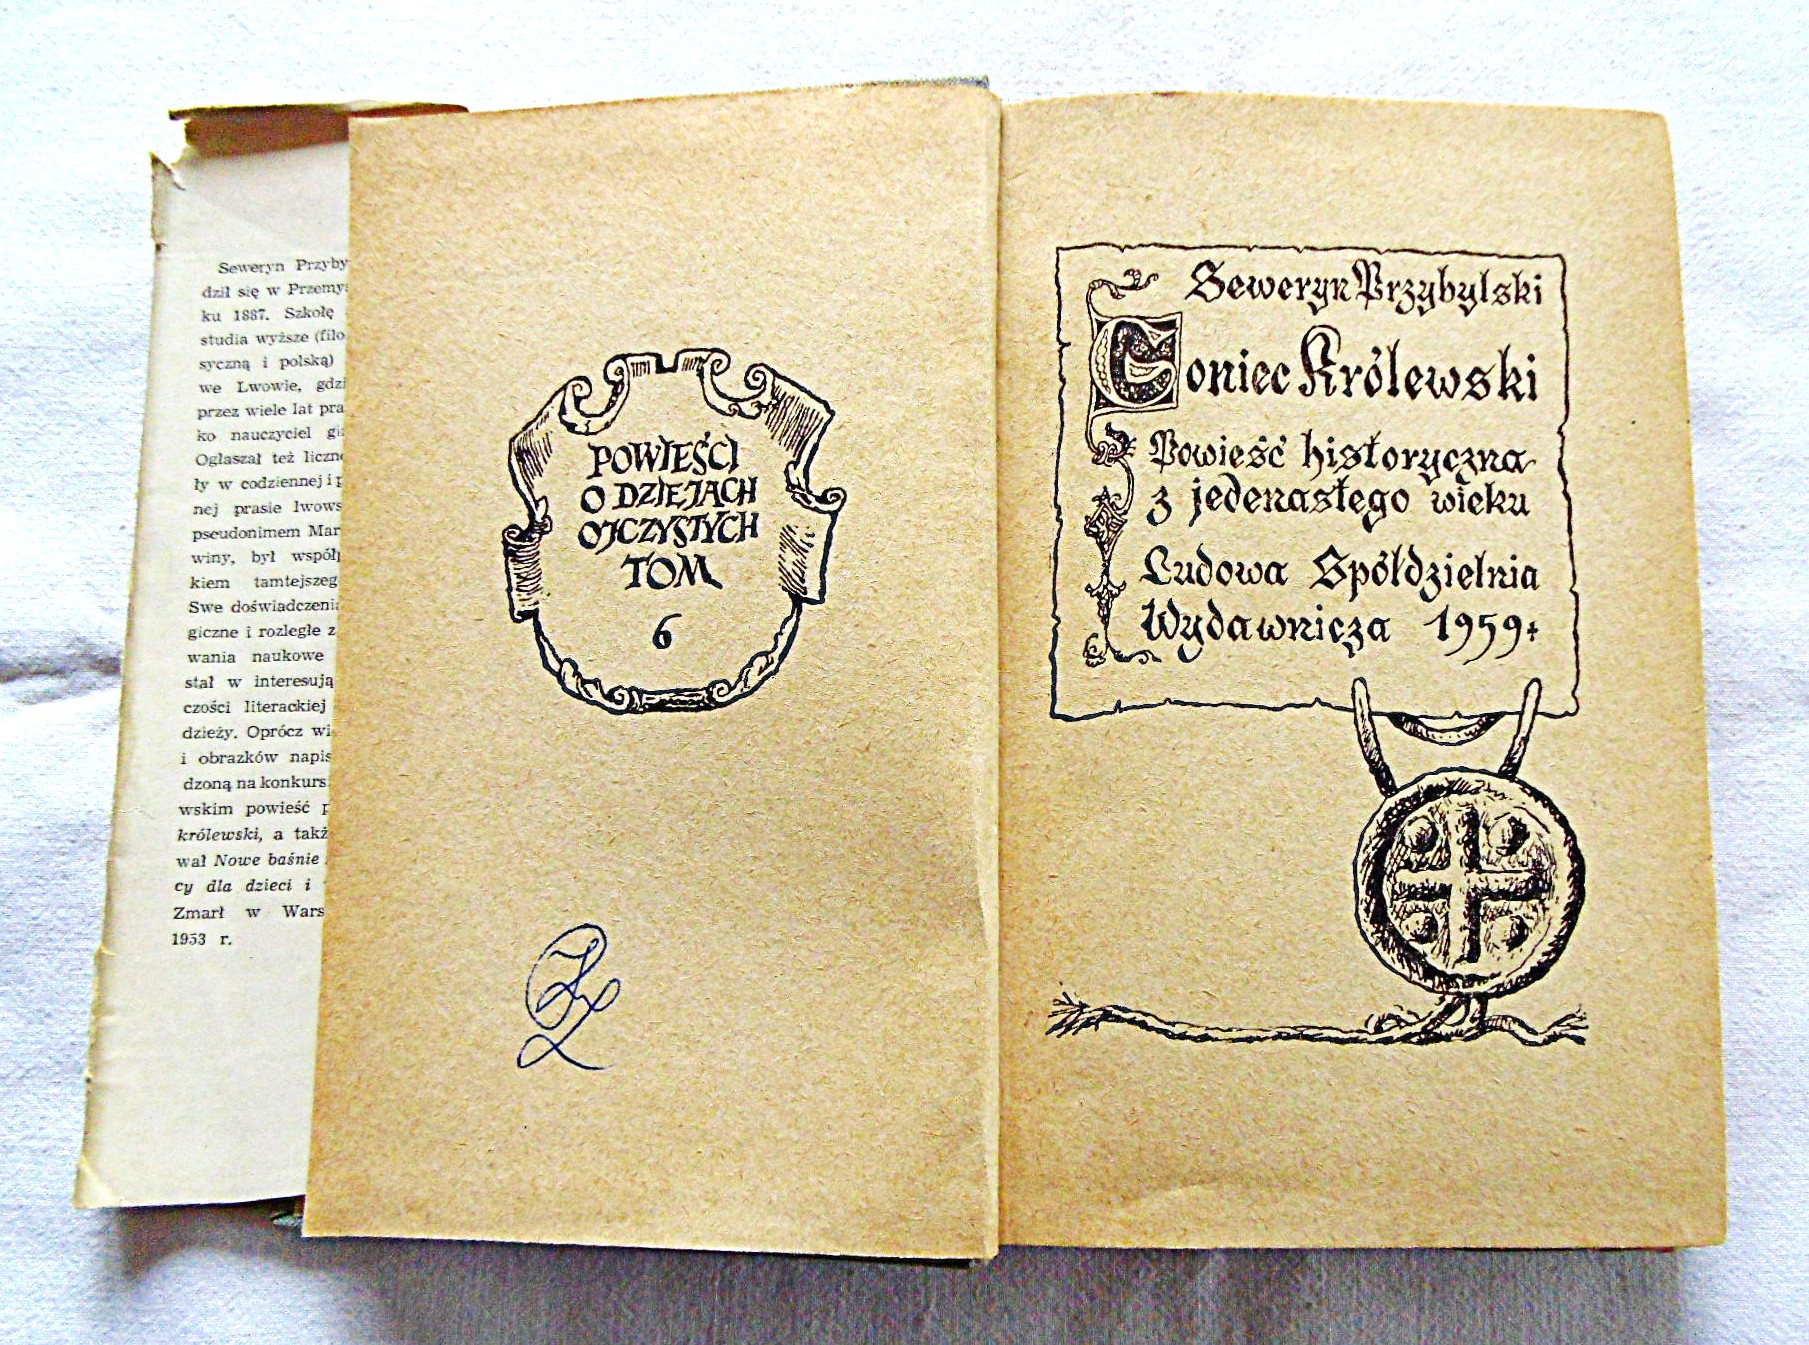 Seweryn Przyby
dził się w Przemyś
ku 1887. Szkołę
studia wyższe (filo
syczną i polską)
we Lwowie, gdzi
przez wiele lat pra
ko nauczyciel gi
Ogłaszał też liczne
ły w codziennej i p
nej prasie lwows
pseudonimem Mar
winy, był współp
kiem tamtejszeg
Swe doświadczenia
giczne i rozległe z
wania naukowe
stał w interesują
czości literackiej
dzieży. Oprócz wi
i obrazków napis
dzoną na konkurs
wskim powieść p
królewski, a takż
wał Nowe baśnie
cy dla dzieci i
Zmarł w Wars
1953 r.
POWIEŚCI
O DZIEJACH
OJCZYSTYCH
TOM
6
Seweryn Przybylski
Goniec Królewski
Powieść historyczna
z jedenastego wieku
Ludowa Spółdzielnia
Wydawnicza 1959